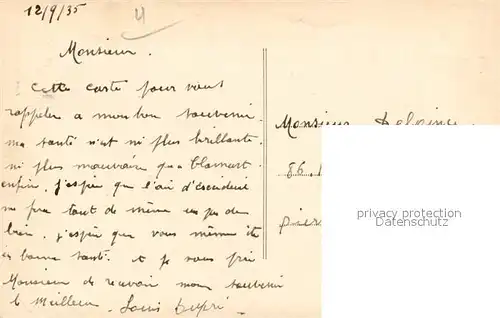 12/9/35
4
Monsieur.
Cette carte pour vous
rappeler a mon bon souvenir.
ma santé n'est ni plus brillante.
ni plus mauvaise qu'a Clamart.
enfin, j'espère que l'air d'
me fera tout de même un peu de
bien. j'espère que vous même êtes
en bonne santé. et je vous prie
Monsieur de recevoir mon souvenir
le meilleur. Louis Dupré.
Monsieur
86.
privacy protection
Datenschutz